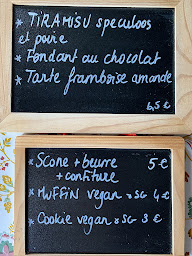 * TIRAMISU speculoos
et poire
* Fondant au chocolat
* Tarte framboise amande
6,5 €
* Scone + beurre 5 €
+ confiture
* MUFFIN vegan * SG 4 €
* Cookie vegan * SG 3 €